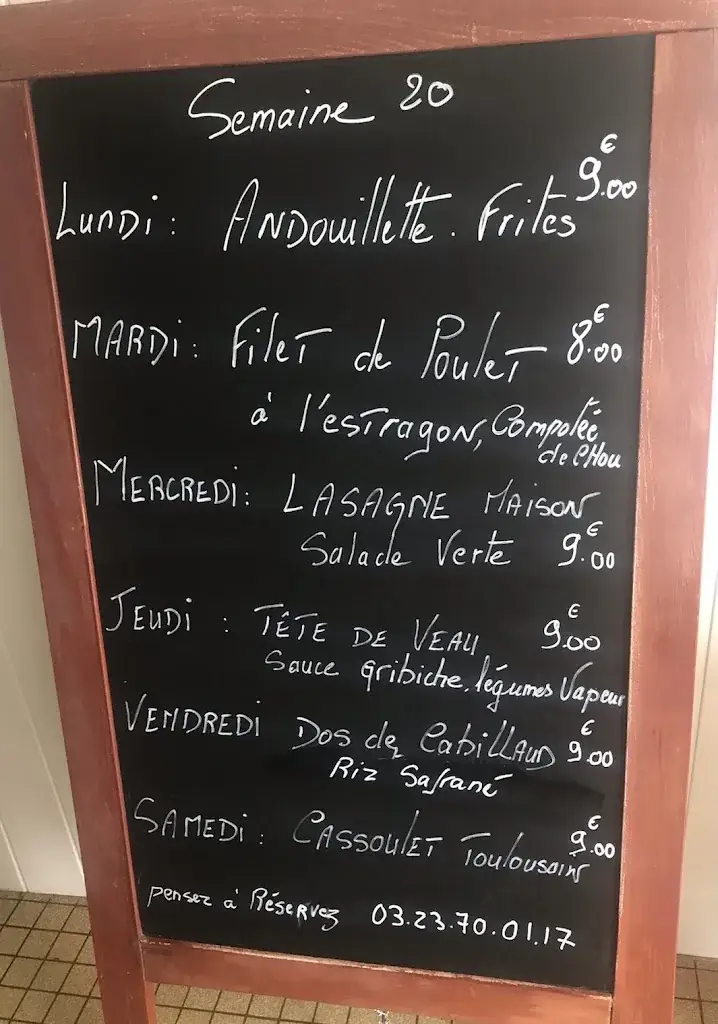 Semaine 20
Lundi : Andouillette . Frites 9.00€
MARDi : Filet de Poulet 8.00€
à l'estragon, Compotée
de chou
MERCREDi : LASAGNE MAiSON
Salade Verte 9.00€
JEUDi : TÊTE DE VEAU 9.00€
Sauce Gribiche, légumes Vapeur
VENDREDI Dos de Cabillaud 9.00€
Riz Safrané
SAMEDi : CASSOULET Toulousain 9.00€
pensez à Réservez 03.23.70.01.17